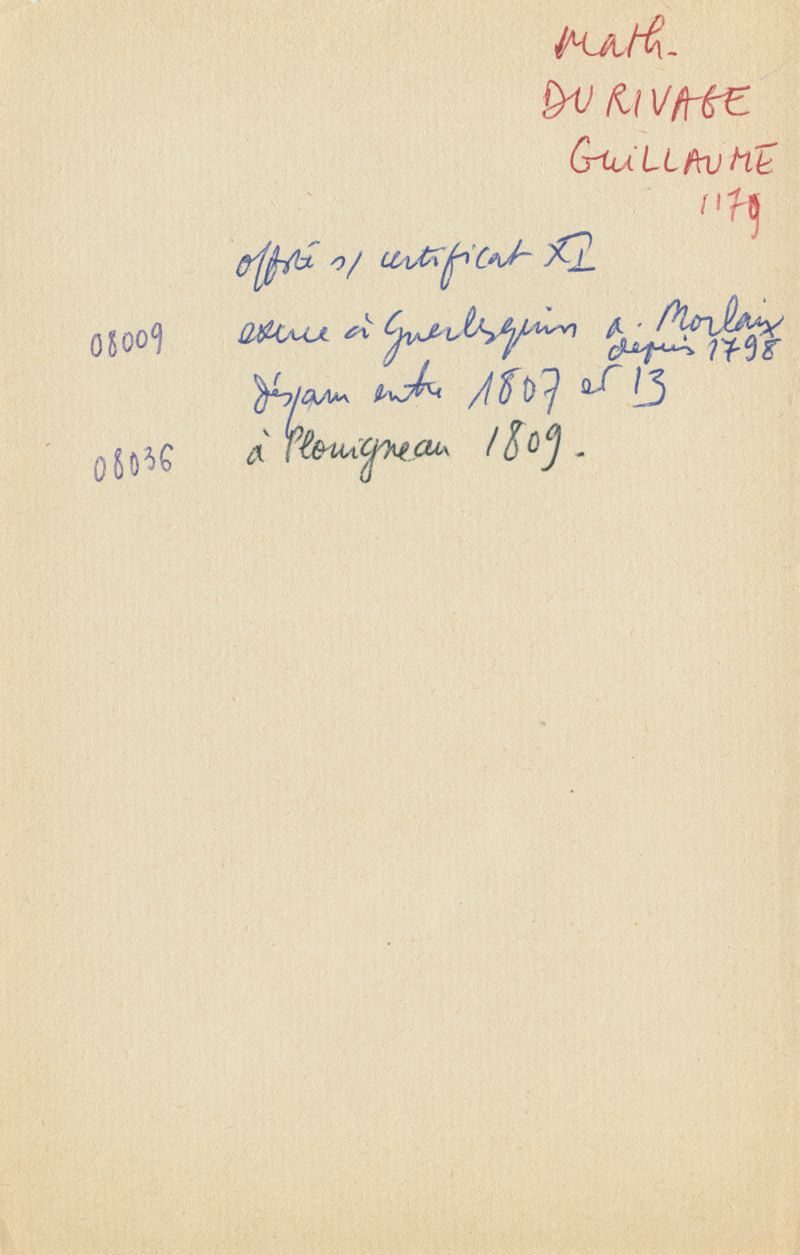 Math.
DURIVAGE
GUILLAUME
1179
s/ certificat XI
08009 exerce à Guerlesquin a. Morlaix
depuis 1798
entre 1807 et 13
08036 à Plouigneau 1809.